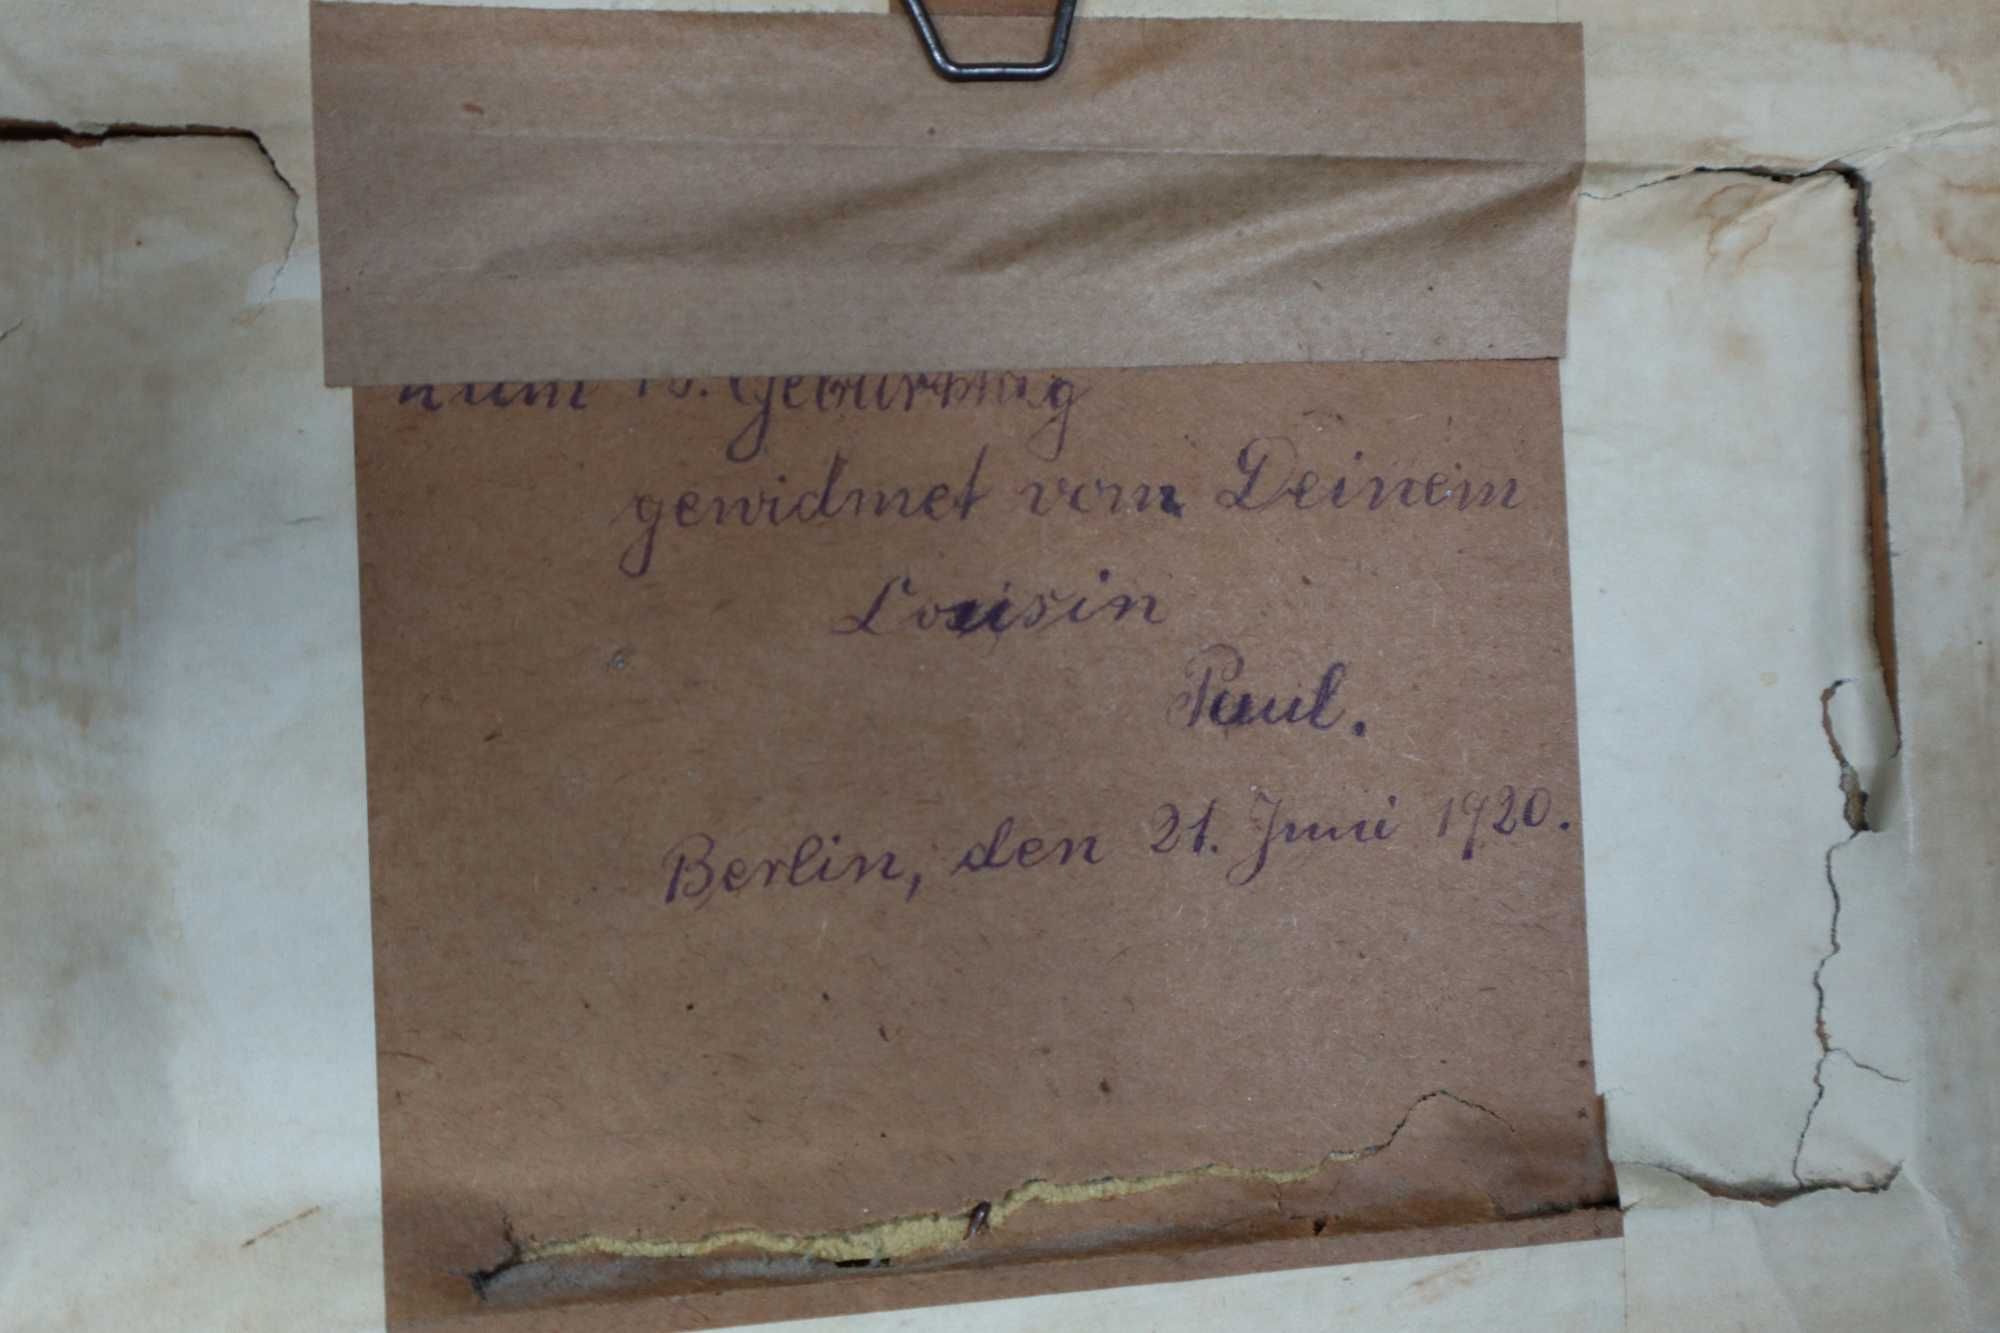 zum 18. Geburtstag
gewidmet von Deinem
Cousin
Paul.
Berlin, den 21. Juni 1920.